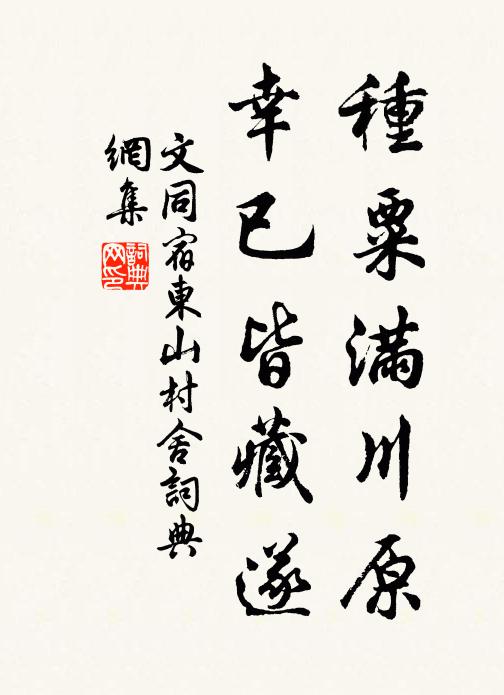 種粟滿川原
幸已皆藏遂
文同宿東山村舍詞典
網集
詞典
网印